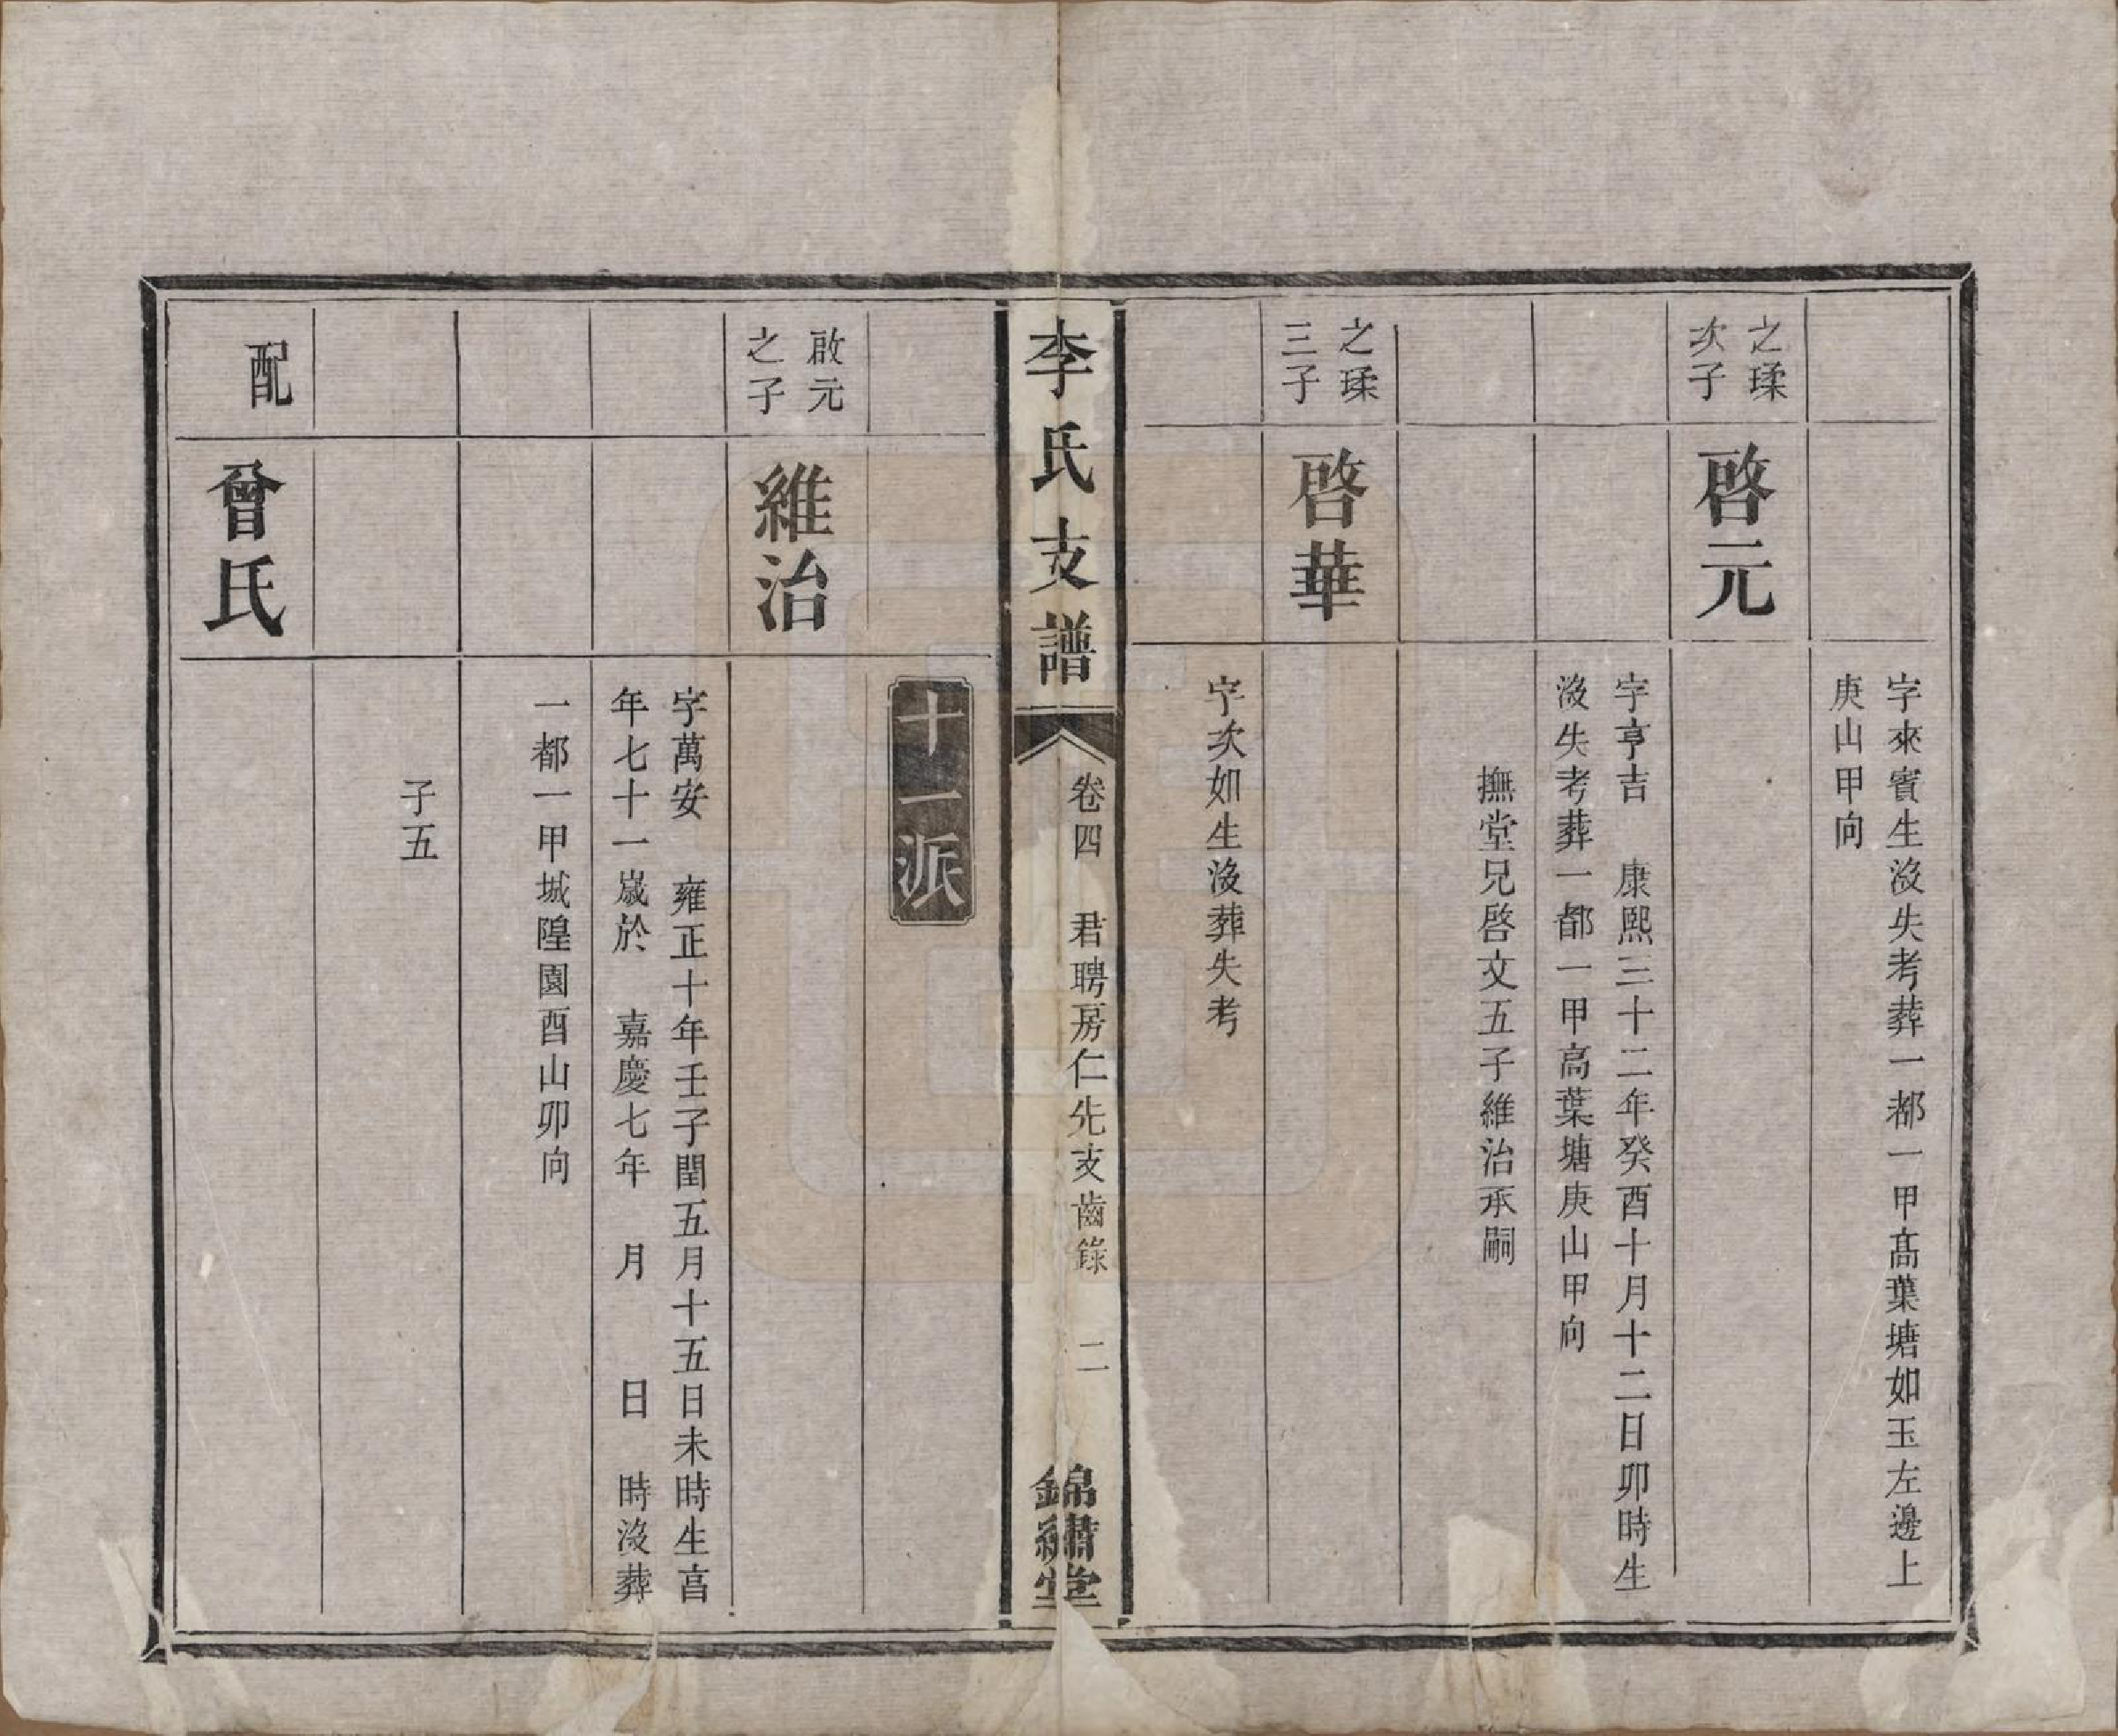 字來賓生沒失考葬一都一甲髙葉塘如玉左邊上
庚山甲向
之瑈
次子
啓元
字亨吉 康熙三十二年癸酉十月十二日卯時生
沒失考葬一都一甲高葉塘庚山甲向
撫堂兄啓文五子維治承嗣
之瑈
三子
啓華
字次如生沒葬失考
李氏支譜
卷四 君聘房仁先支齒錄 二
錦繡堂
十一派
啟元
之子
維治
字萬安 雍正十年壬子閏五月十五日未時生亯
年七十一嵗於 嘉慶七年 月 日 時沒葬
一都一甲城隍園酉山卯向
子五
配
曾氏